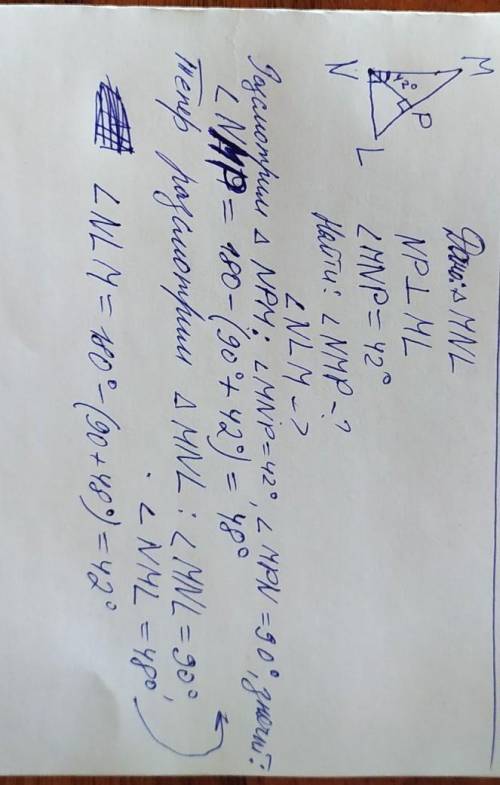 M
N
42°
P
L
Дано: Δ MNL
NP⊥ML
∠MNP=42°
Найти: ∠NMP-?
∠NLM-?
Рассмотрим Δ NPM: ∠MNP=42°, ∠MPN=90°, значит:
∠NMP=180-(90°+42°)=48°
Тепер рассмотрим Δ MNL: ∠MNL=90°
∠NML=48°,
∠NLM=180°-(90+48°)=42°